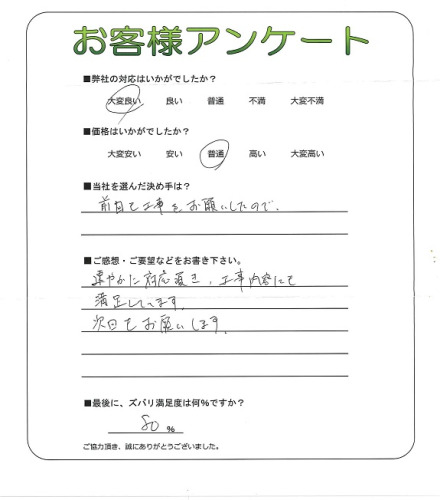 お客様アンケート
■弊社の対応はいかがでしたか？
大変良い 良い 普通 不満 大変不満
■価格はいかがでしたか？
大変安い 安い 普通 高い 大変高い
■当社を選んだ決め手は？
前回も工事をお願いしたので、
■ご感想・ご要望などをお書き下さい。
速やかに対応頂き、工事内容にも
満足しています。
次回もお願いします。
■最後に、ズバリ満足度は何％ですか？
80 ％
ご協力頂き、誠にありがとうございました。